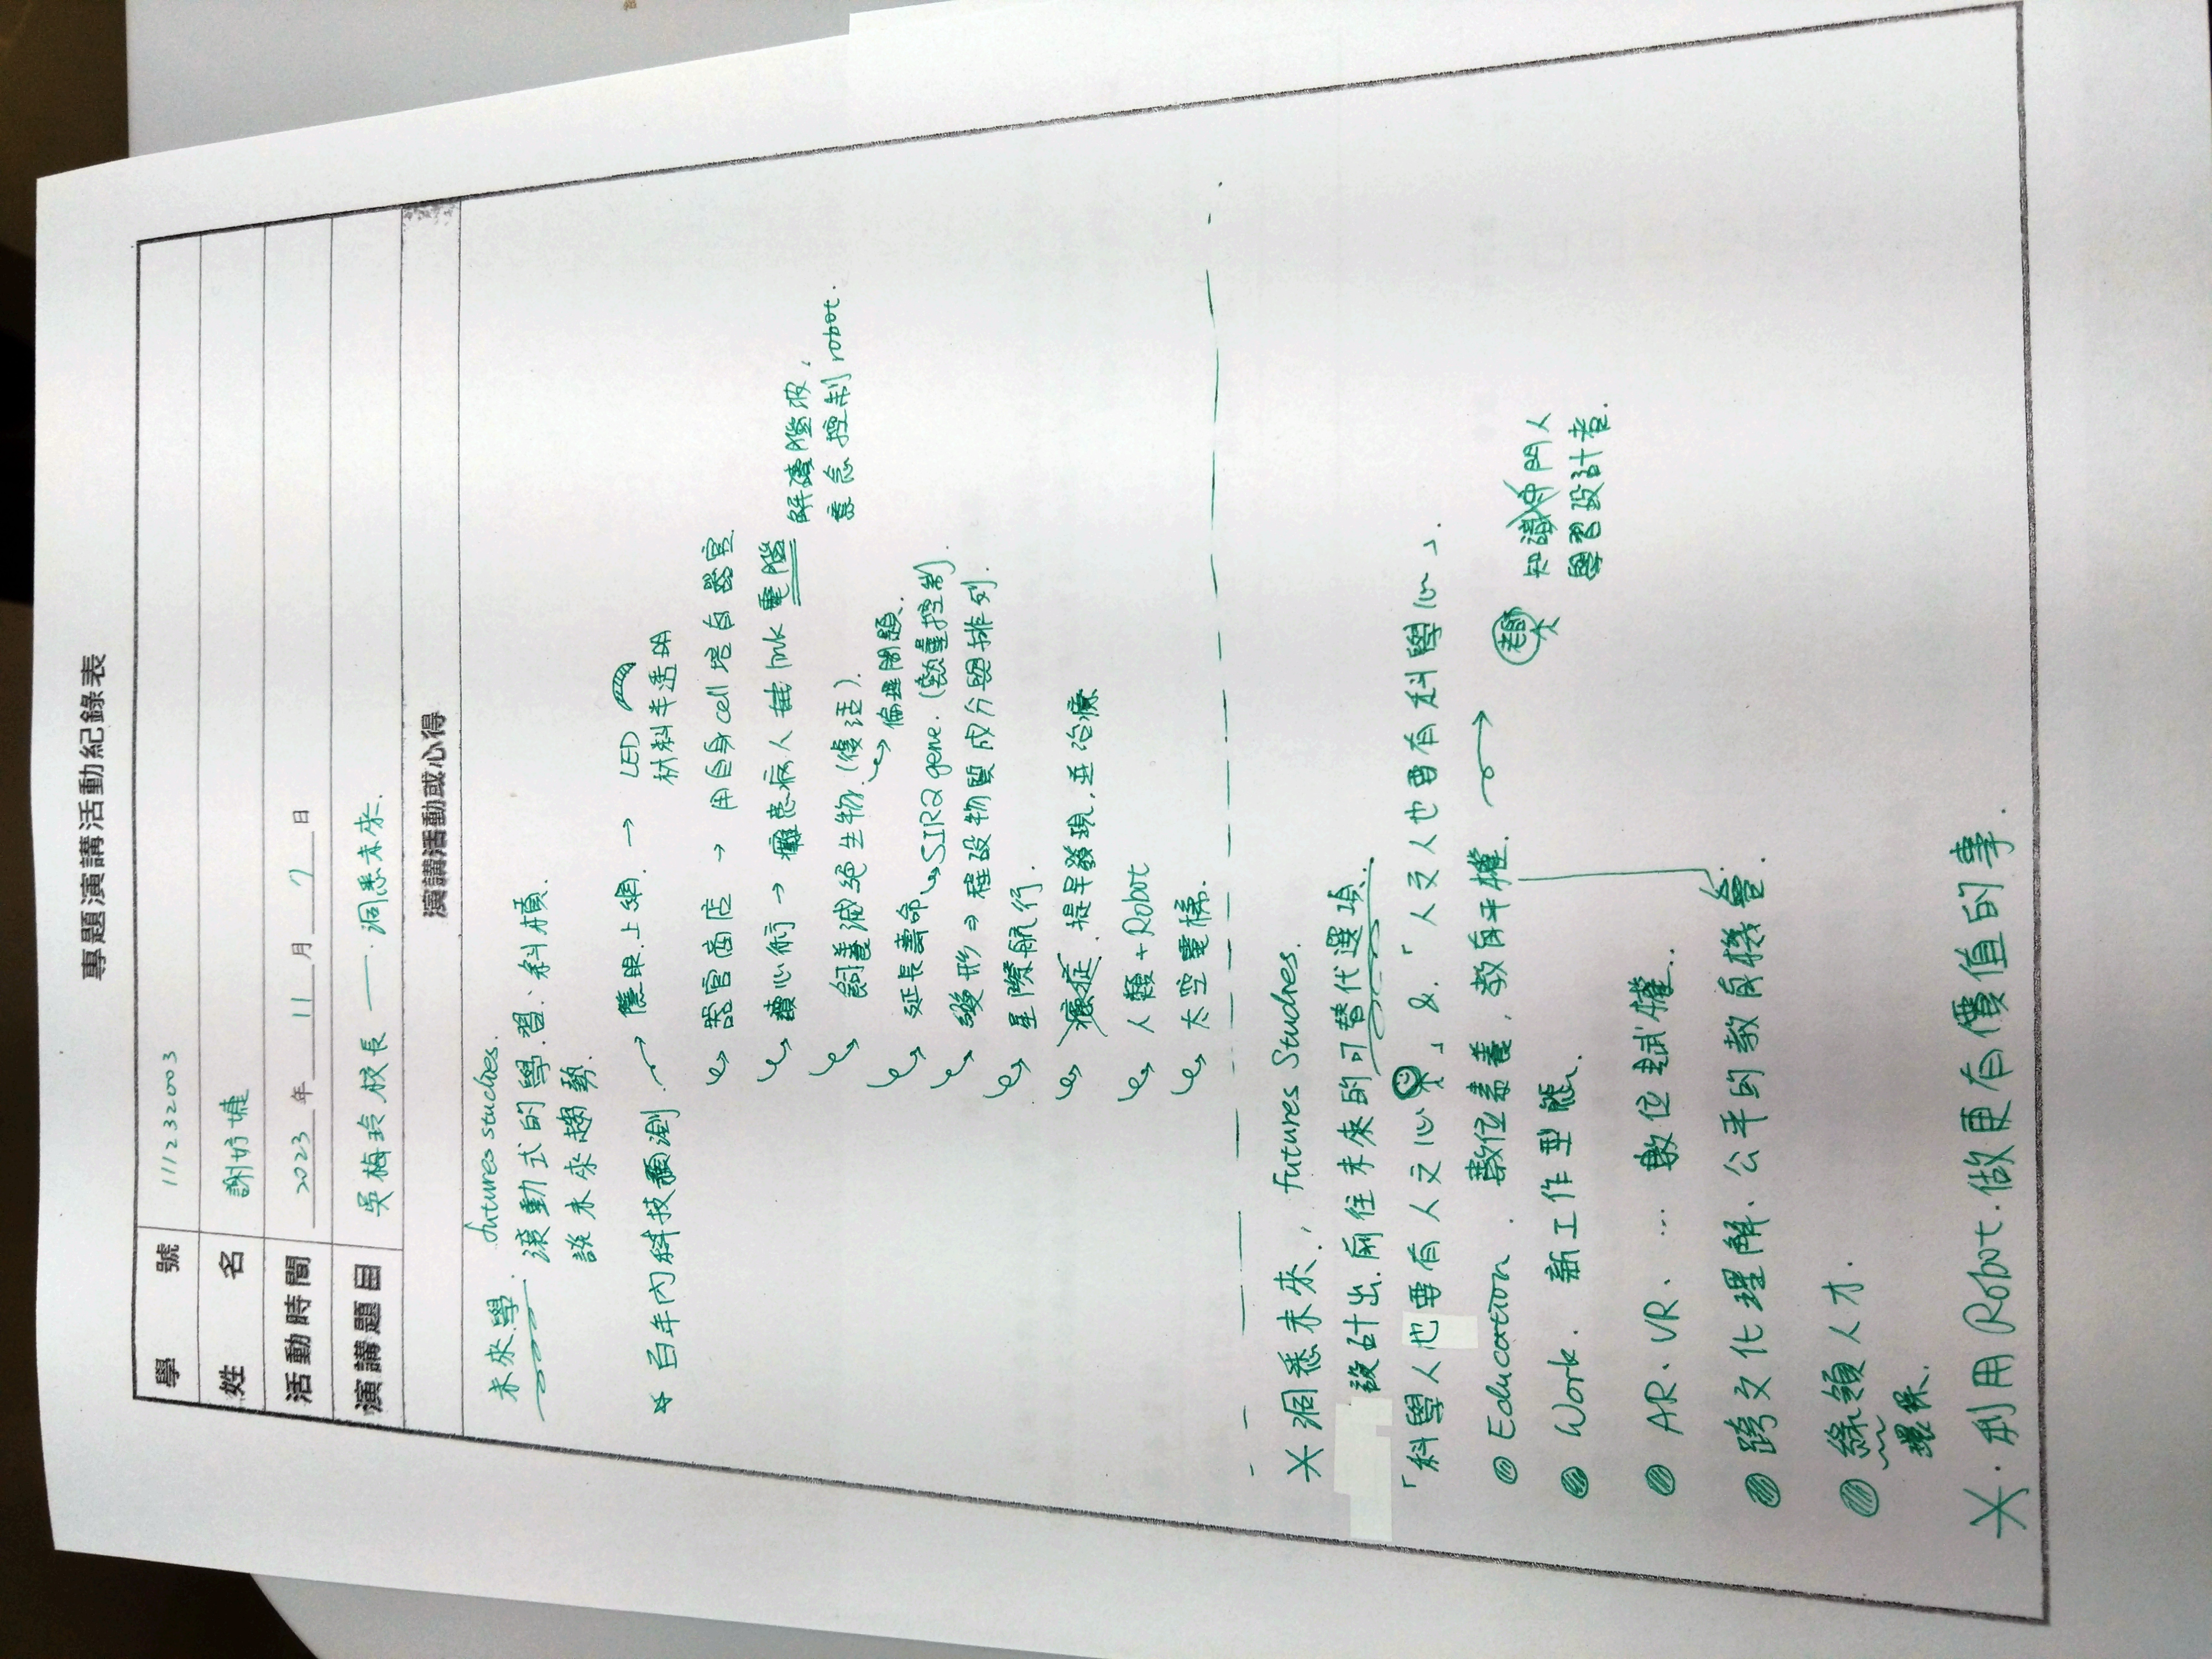 專題演講活動紀錄表
學 號 111232003
姓 名 謝妤婕
活動時間 2023 年 11 月 7 日
演講題目 吳梅玲校長 —— 洞悉未來.
演講活動或心得
未來學. futures studies.
滾動式的學習. 斜槓.
談未來趨勢.
☆ 百年內科技預測 → 隱眼上網. → LED
材料半透明
器官商店 → 用自身cell培育器官.
讀心術 → 癱瘓病人 link 電腦 解讀腦波,
意念控制robot.
飼養滅絕生物.(復活).
倫理問題.
延長壽命 SIR2 gene. (熱量控制).
變形 ⇒ 程設物質成分與排列.
星際航行.
癌症. 提早發現, 並治療
人類 + Robot
太空電梯.
* 洞悉未來, futures Studies.
設計出.前往未來的可替代選項.
「科學人也要有人文心」&.「人文人也要有科學心」.
Education. 數位素養, 教育平權. →
老師 知識守門人
學習設計者.
Work. 新工作型態.
AR、VR、… 數位賦權..
跨文化理解、公平的教育機會.
綠領人才.
環保.
*. 利用 Robot.做更有價值的事.